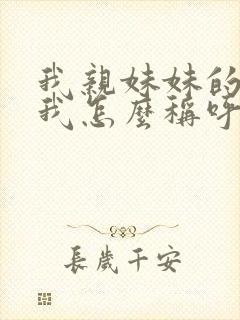 我親妹妹的
我怎麼稱呼
長歲千安